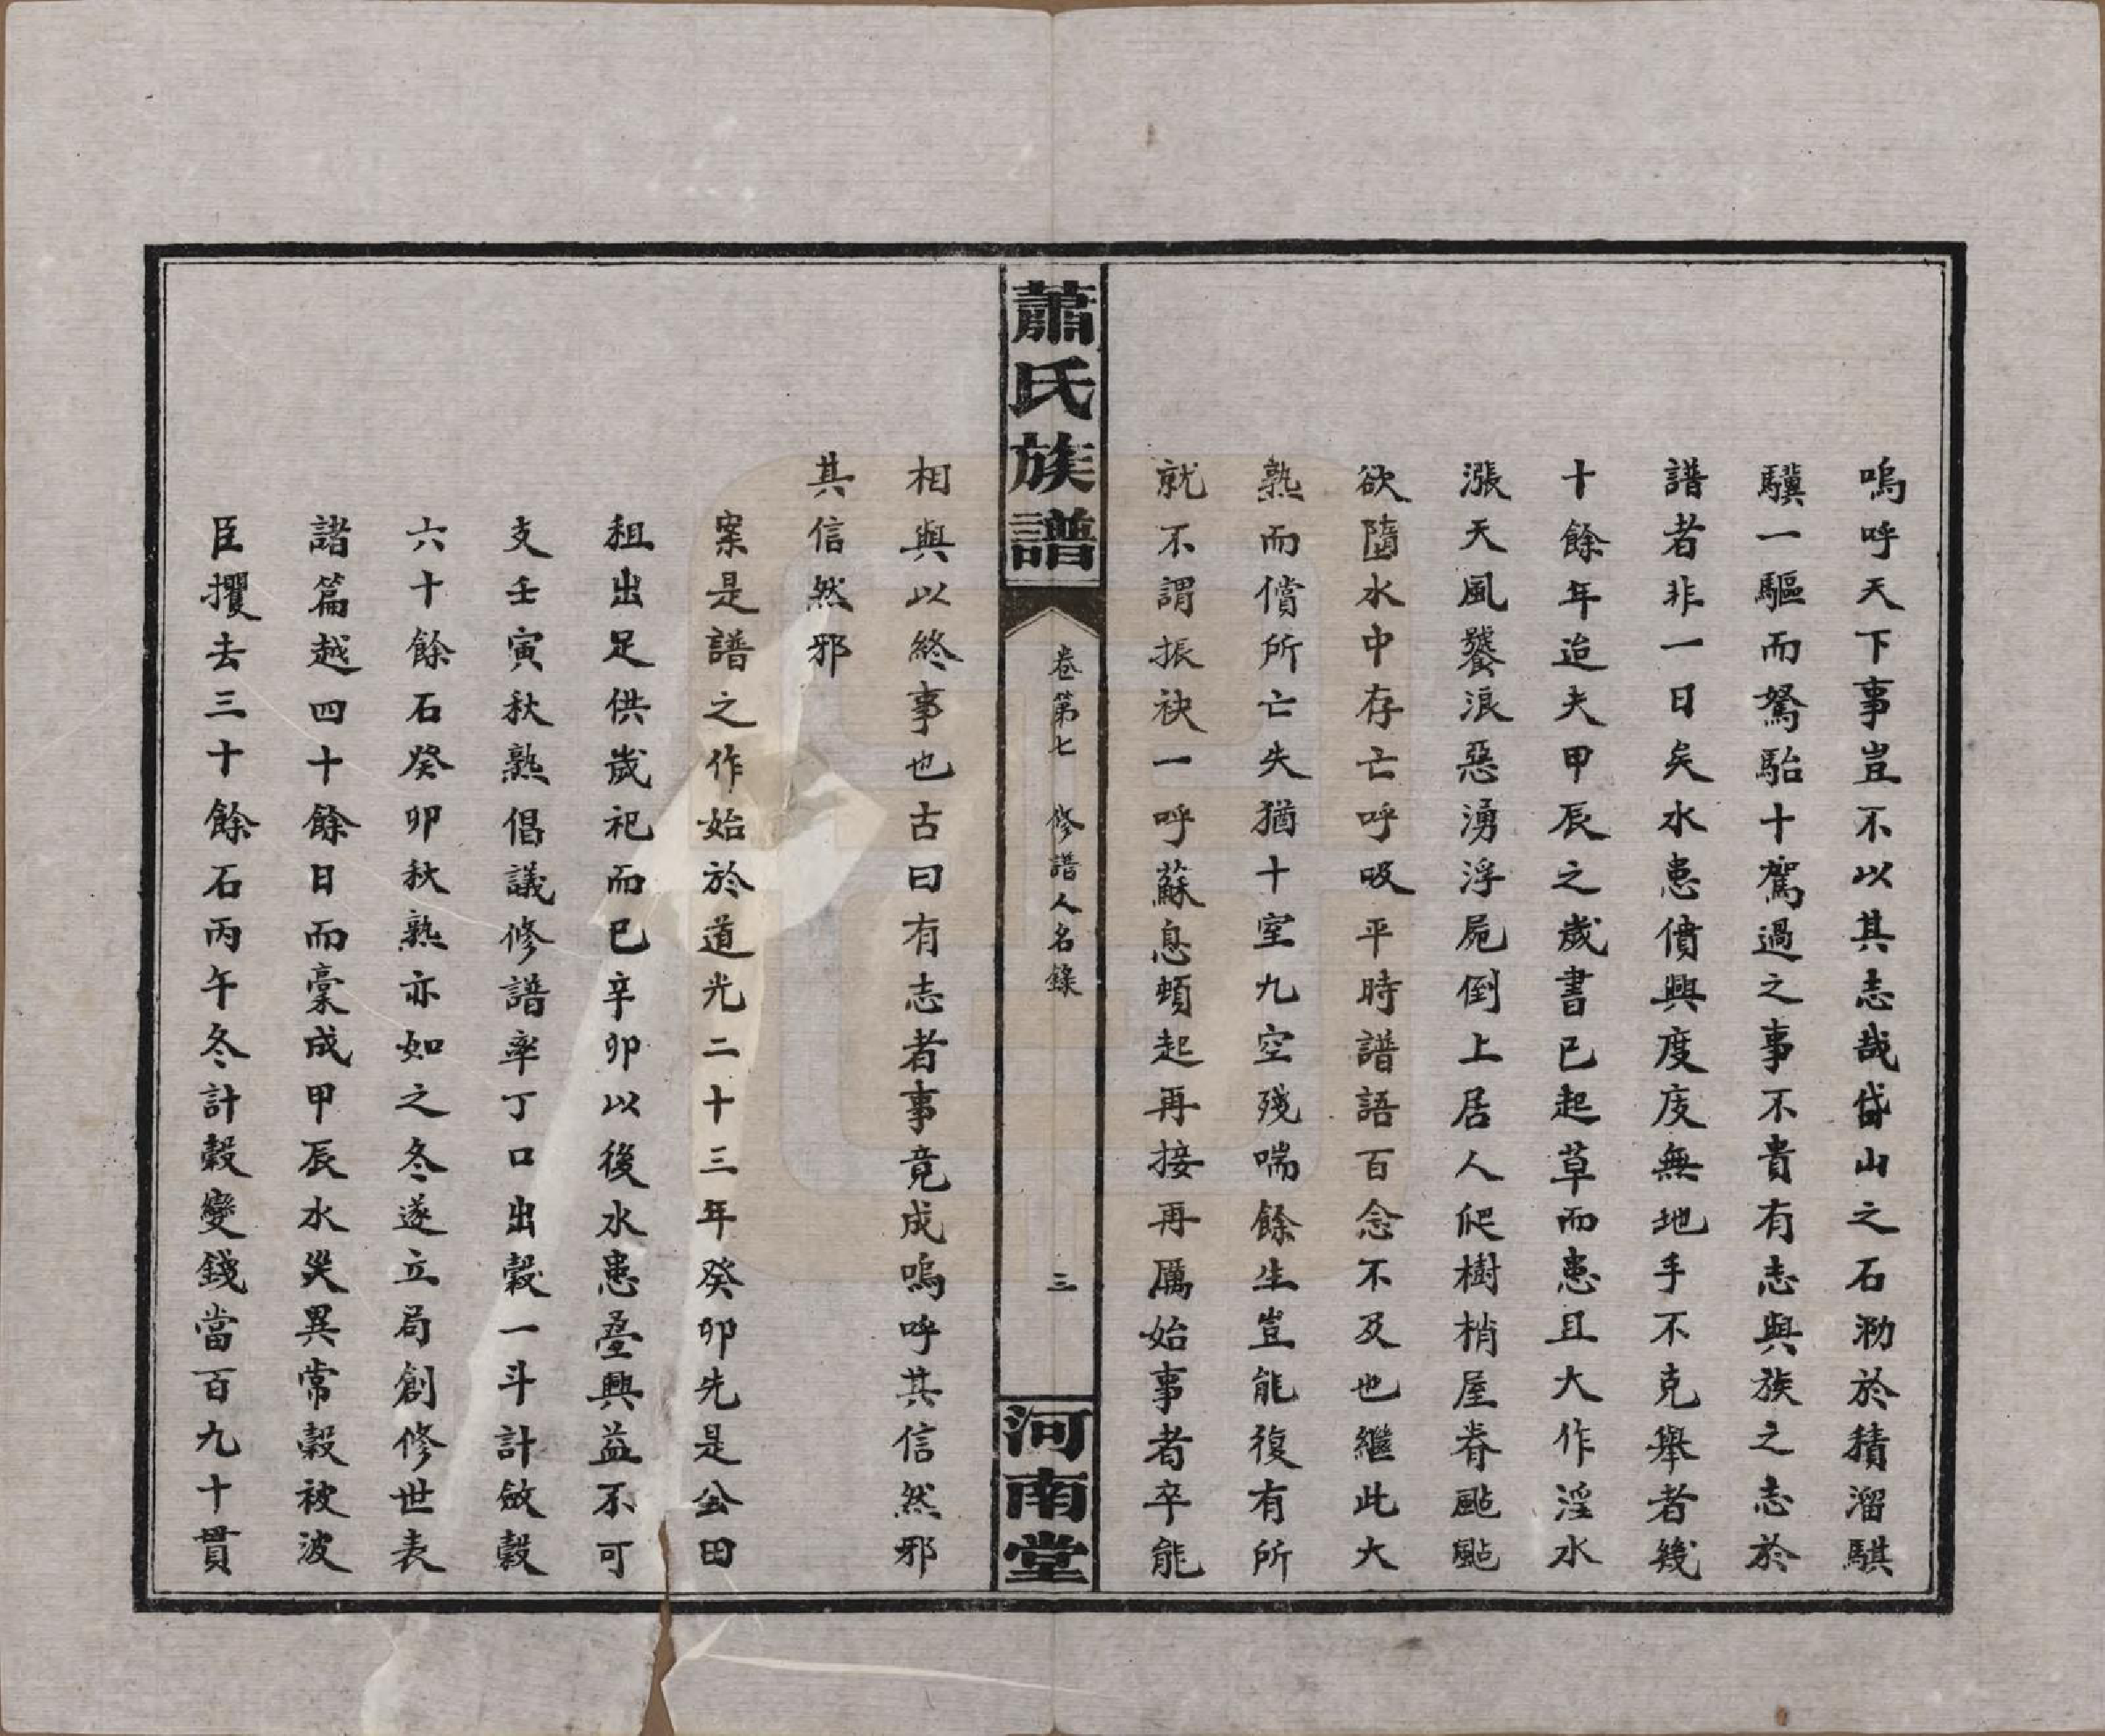 嗚呼天下事豈不以其志哉岱山之石泐於積溜騏
驥一驅而駑駘十駕過之事不貴有志與族之志於
譜者非一日矣水患僨興度度無地手不克舉者幾
十餘年迨夫甲辰之歲書已起草而患且大作淫水
漲天風饕浪惡湧浮屍倒上居人爬樹梢屋脊颭颭
欲隨水中存亡呼吸平時譜語百念不及也繼此大
熟而償所亡失猶十室九空殘喘餘生豈能復有所
就不謂振袂一呼蘇息頓起再接再厲始事者卒能
蕭氏族譜
卷第七 修譜人名錄
三
河南堂
相與以終事也古曰有志者事竟成嗚呼其信然邪
其信然邪
案是譜之作始於道光二十三年癸卯先是公田
租出足供歲祀而已辛卯以後水患疊興益不可
支壬寅秋熟倡議修譜率丁口出穀一斗計斂穀
六十餘石癸卯秋熟亦如之冬遂立局創修世表
諸篇越四十餘日而稾成甲辰水災異常穀被波
臣攫去三十餘石丙午冬計穀變錢當百九十貫